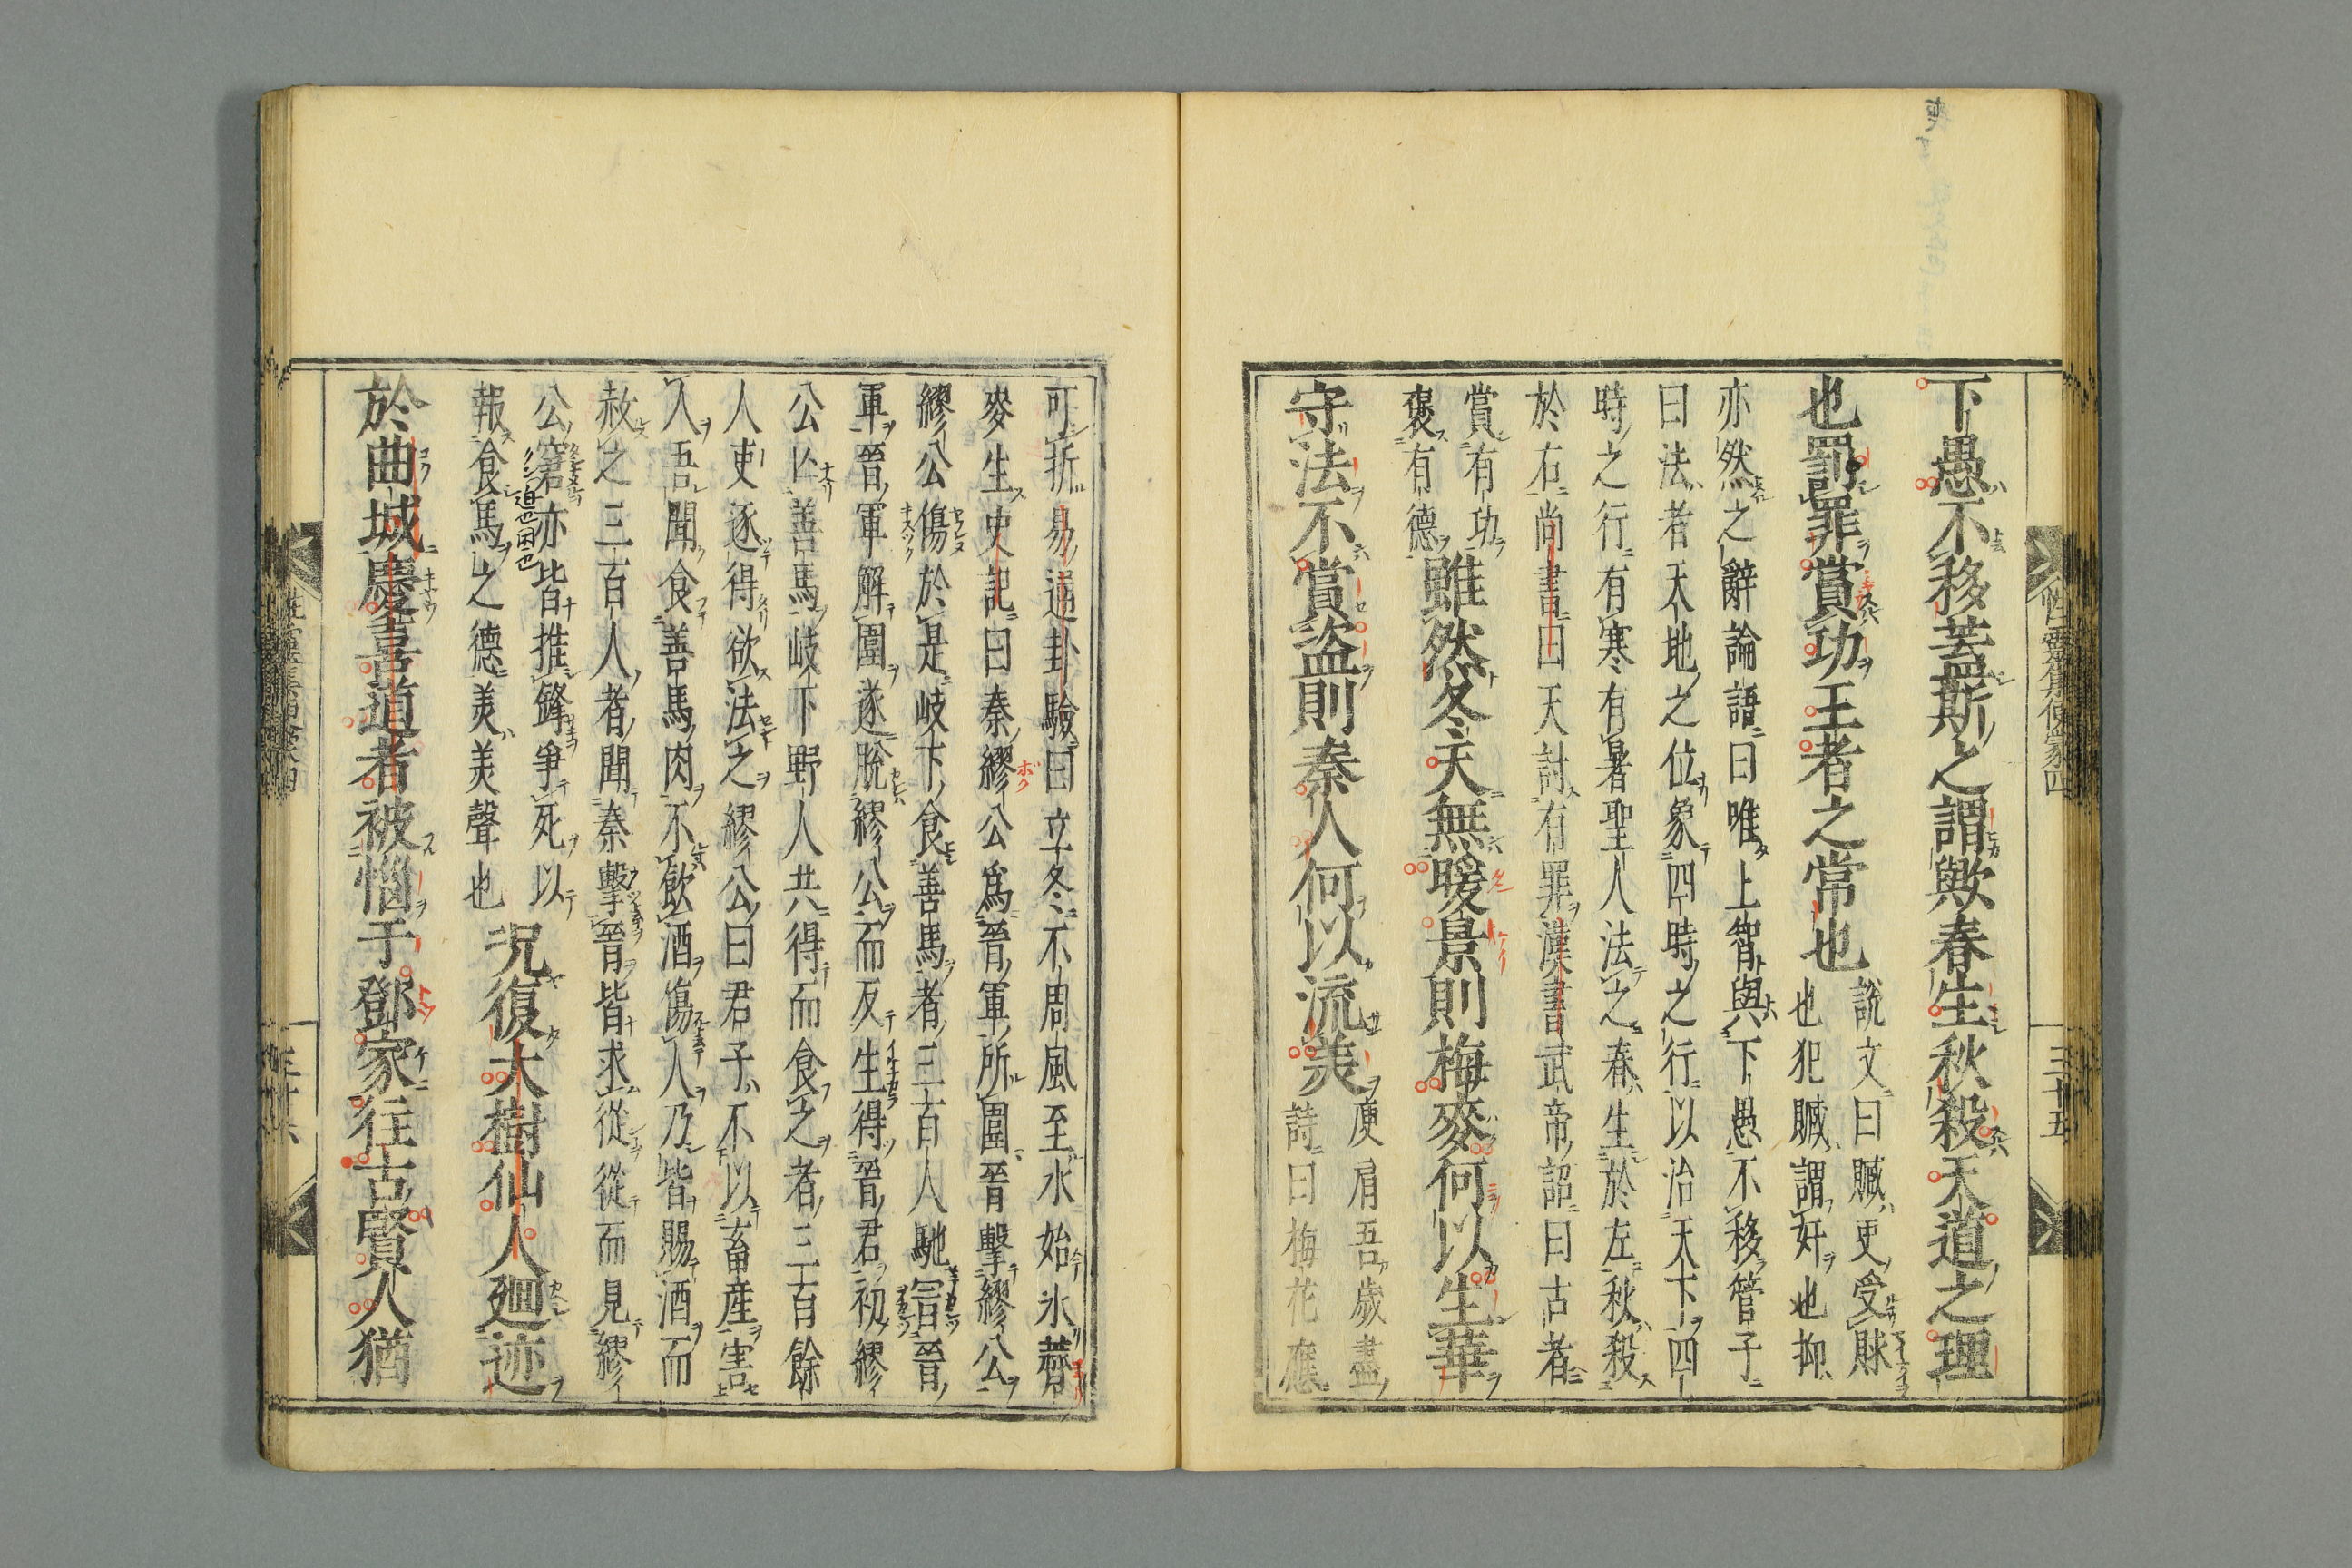 性靈集便蒙四
三十五
下愚不移蓋斯之謂歟春生秋殺天道之理
也罰罪賞功王者之常也
説文曰贓吏受賕
也犯贓謂奸也抑
亦然之辭論語曰唯上智與下愚不移管子
曰法者天地之位象四時之行以治天下四
時之行有寒有暑聖人法之春生於左秋殺
於右尚書曰天討有罪漢書武帝詔曰古者
賞有功
褒有德
雖然冬天無暖景則梅麥何以生華
守法不賞盜則秦人何以流美
庾肩吾歲盡
詩曰梅花應
可折易通卦驗曰立冬不周風至水始氷薺
麥生史記曰秦繆公爲晉軍所圍晉擊繆公
繆公傷於是岐下食善馬者三百人馳冒晉
軍晉軍解圍遂脫繆公而反生得晉君初繆
公亾善馬岐下野人共得而食之者三百餘
人吏逐得欲法之繆公曰君子不以畜産害
人吾聞食善馬肉不飮酒傷人乃皆賜酒而
赦之三百人者聞秦擊晉皆求從從而見繆
公窘亦皆推鋒爭死以
報食馬之德美美聲也
况復大樹仙人廻迹
於曲城慶喜道者被惱于鄧家往古賢人猶